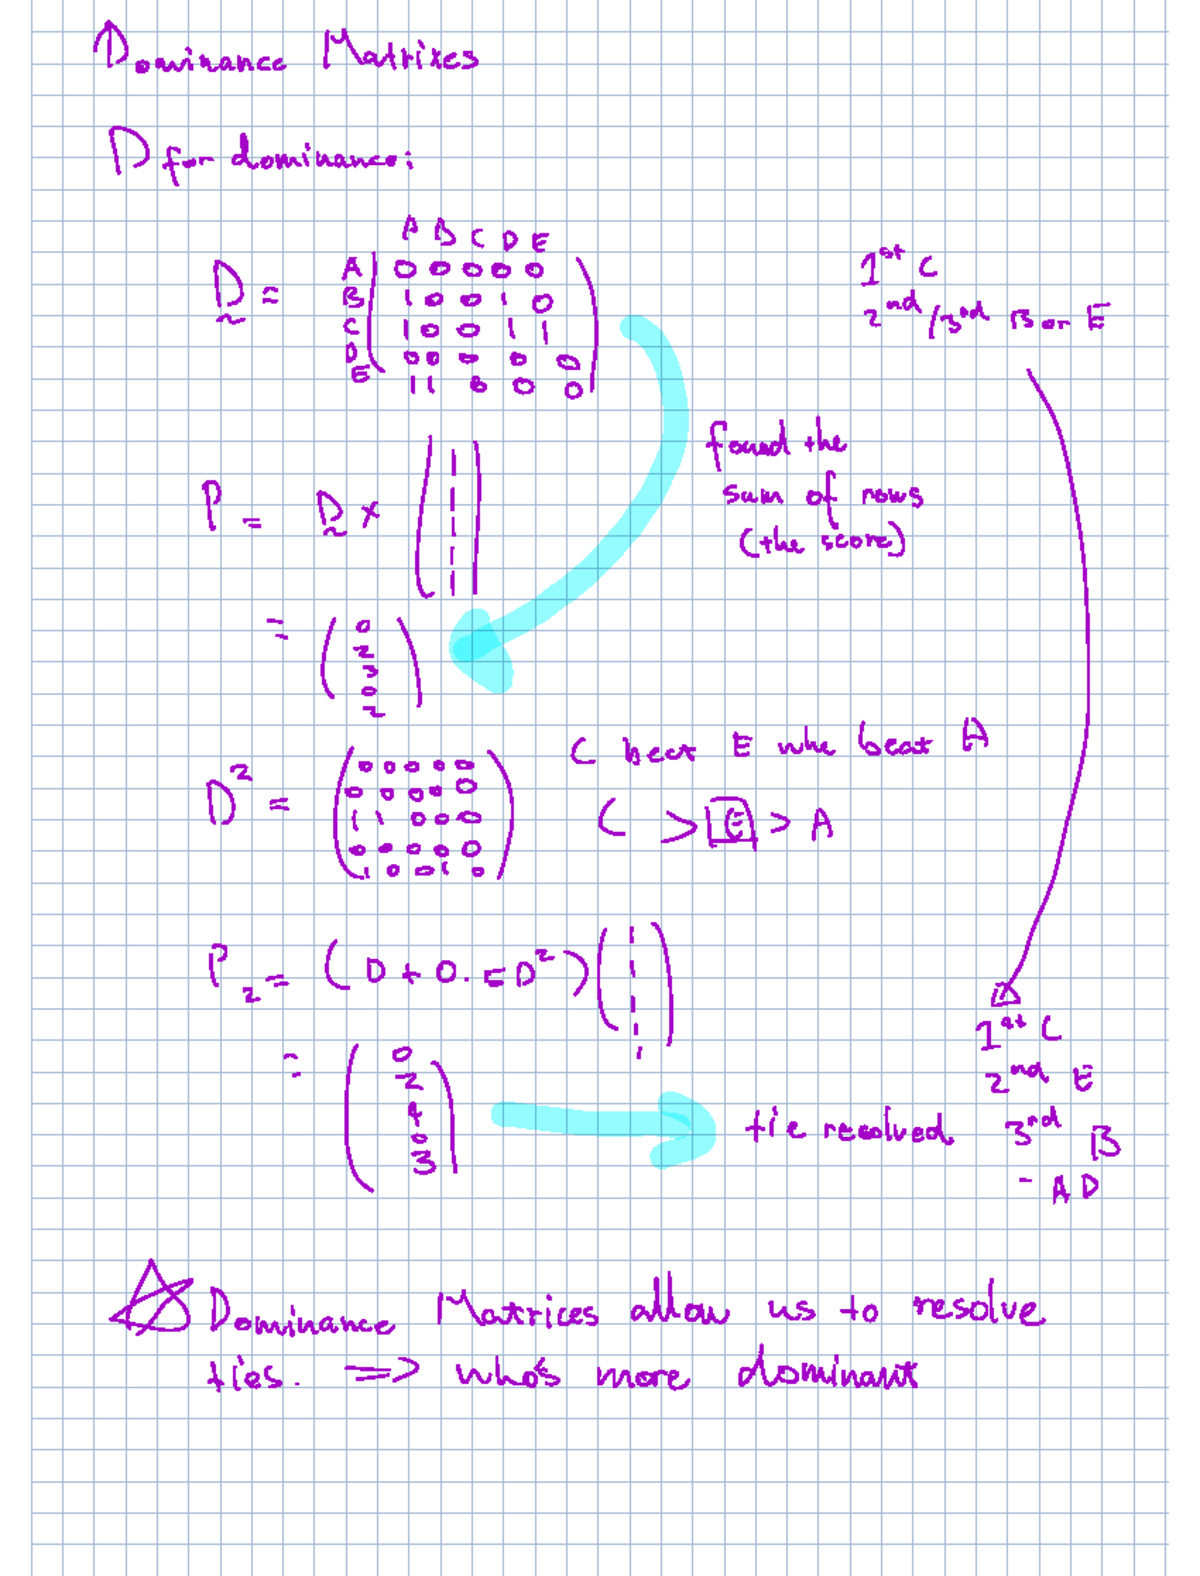 Dominance Matrixes
D for dominance:
A B C D E
D = A ( 0 0 0 0 0 )
B 1 0 0 1 0
C 1 0 0 1 1
D 0 0 0 0 0
E 1 1 0 0 0
1st C
2nd/3rd B or E
found the
sum of rows
(the score)
P = D × ( 1 1 1 1 1 )
= ( 0
2
3
0
2 )
D² = ( 0 0 0 0 0
0 0 0 0 0
1 1 0 0 0
0 0 0 0 0
1 0 0 1 0 )
C beat E who beat A
C > E > A
P2 = (D + 0.5D²) ( 1 1 1 1 1 )
= ( 0
2
4
0
3 )
tie resolved
1st C
2nd E
3rd B
- A D
Dominance Matrices allow us to resolve
ties. => who's more dominant